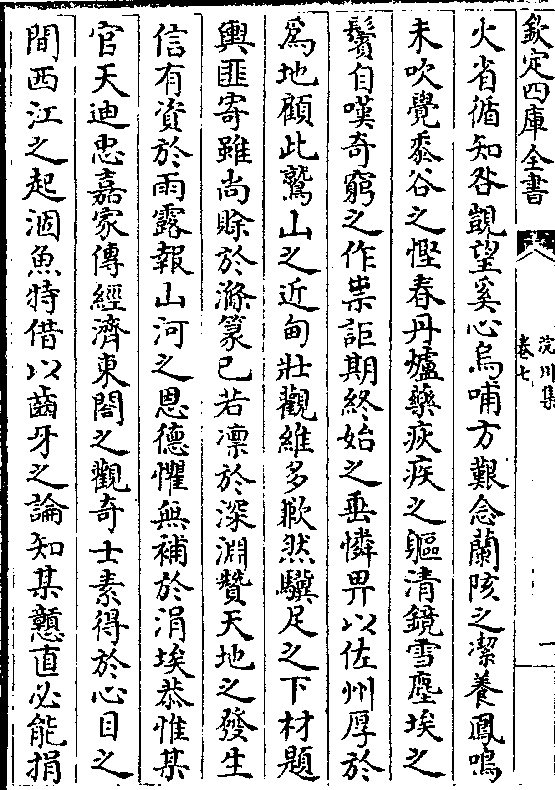 欽定四庫全書
浣川集
卷七
一
火省循知咎覬望奚心烏哺方艱念蘭陔之潔養鳳鳴
未吹覺黍谷之慳春丹爐藥疢疾之軀清鏡雪塵埃之
鬢自嘆奇窮之作祟詎期終始之垂憐畀以佐州厚於
為地顧此鷲山之近甸壯觀維多歉然驥足之下材題
輿匪寄雖尚賒於滌篆已若凜於深淵贊天地之發生
信有資於雨露報山河之恩德懼無補於涓埃恭惟某
官天迪忠嘉家傳經濟東閤之觀奇士素得於心目之
間西江之起涸魚特借以齒牙之論知某戇直必能捐